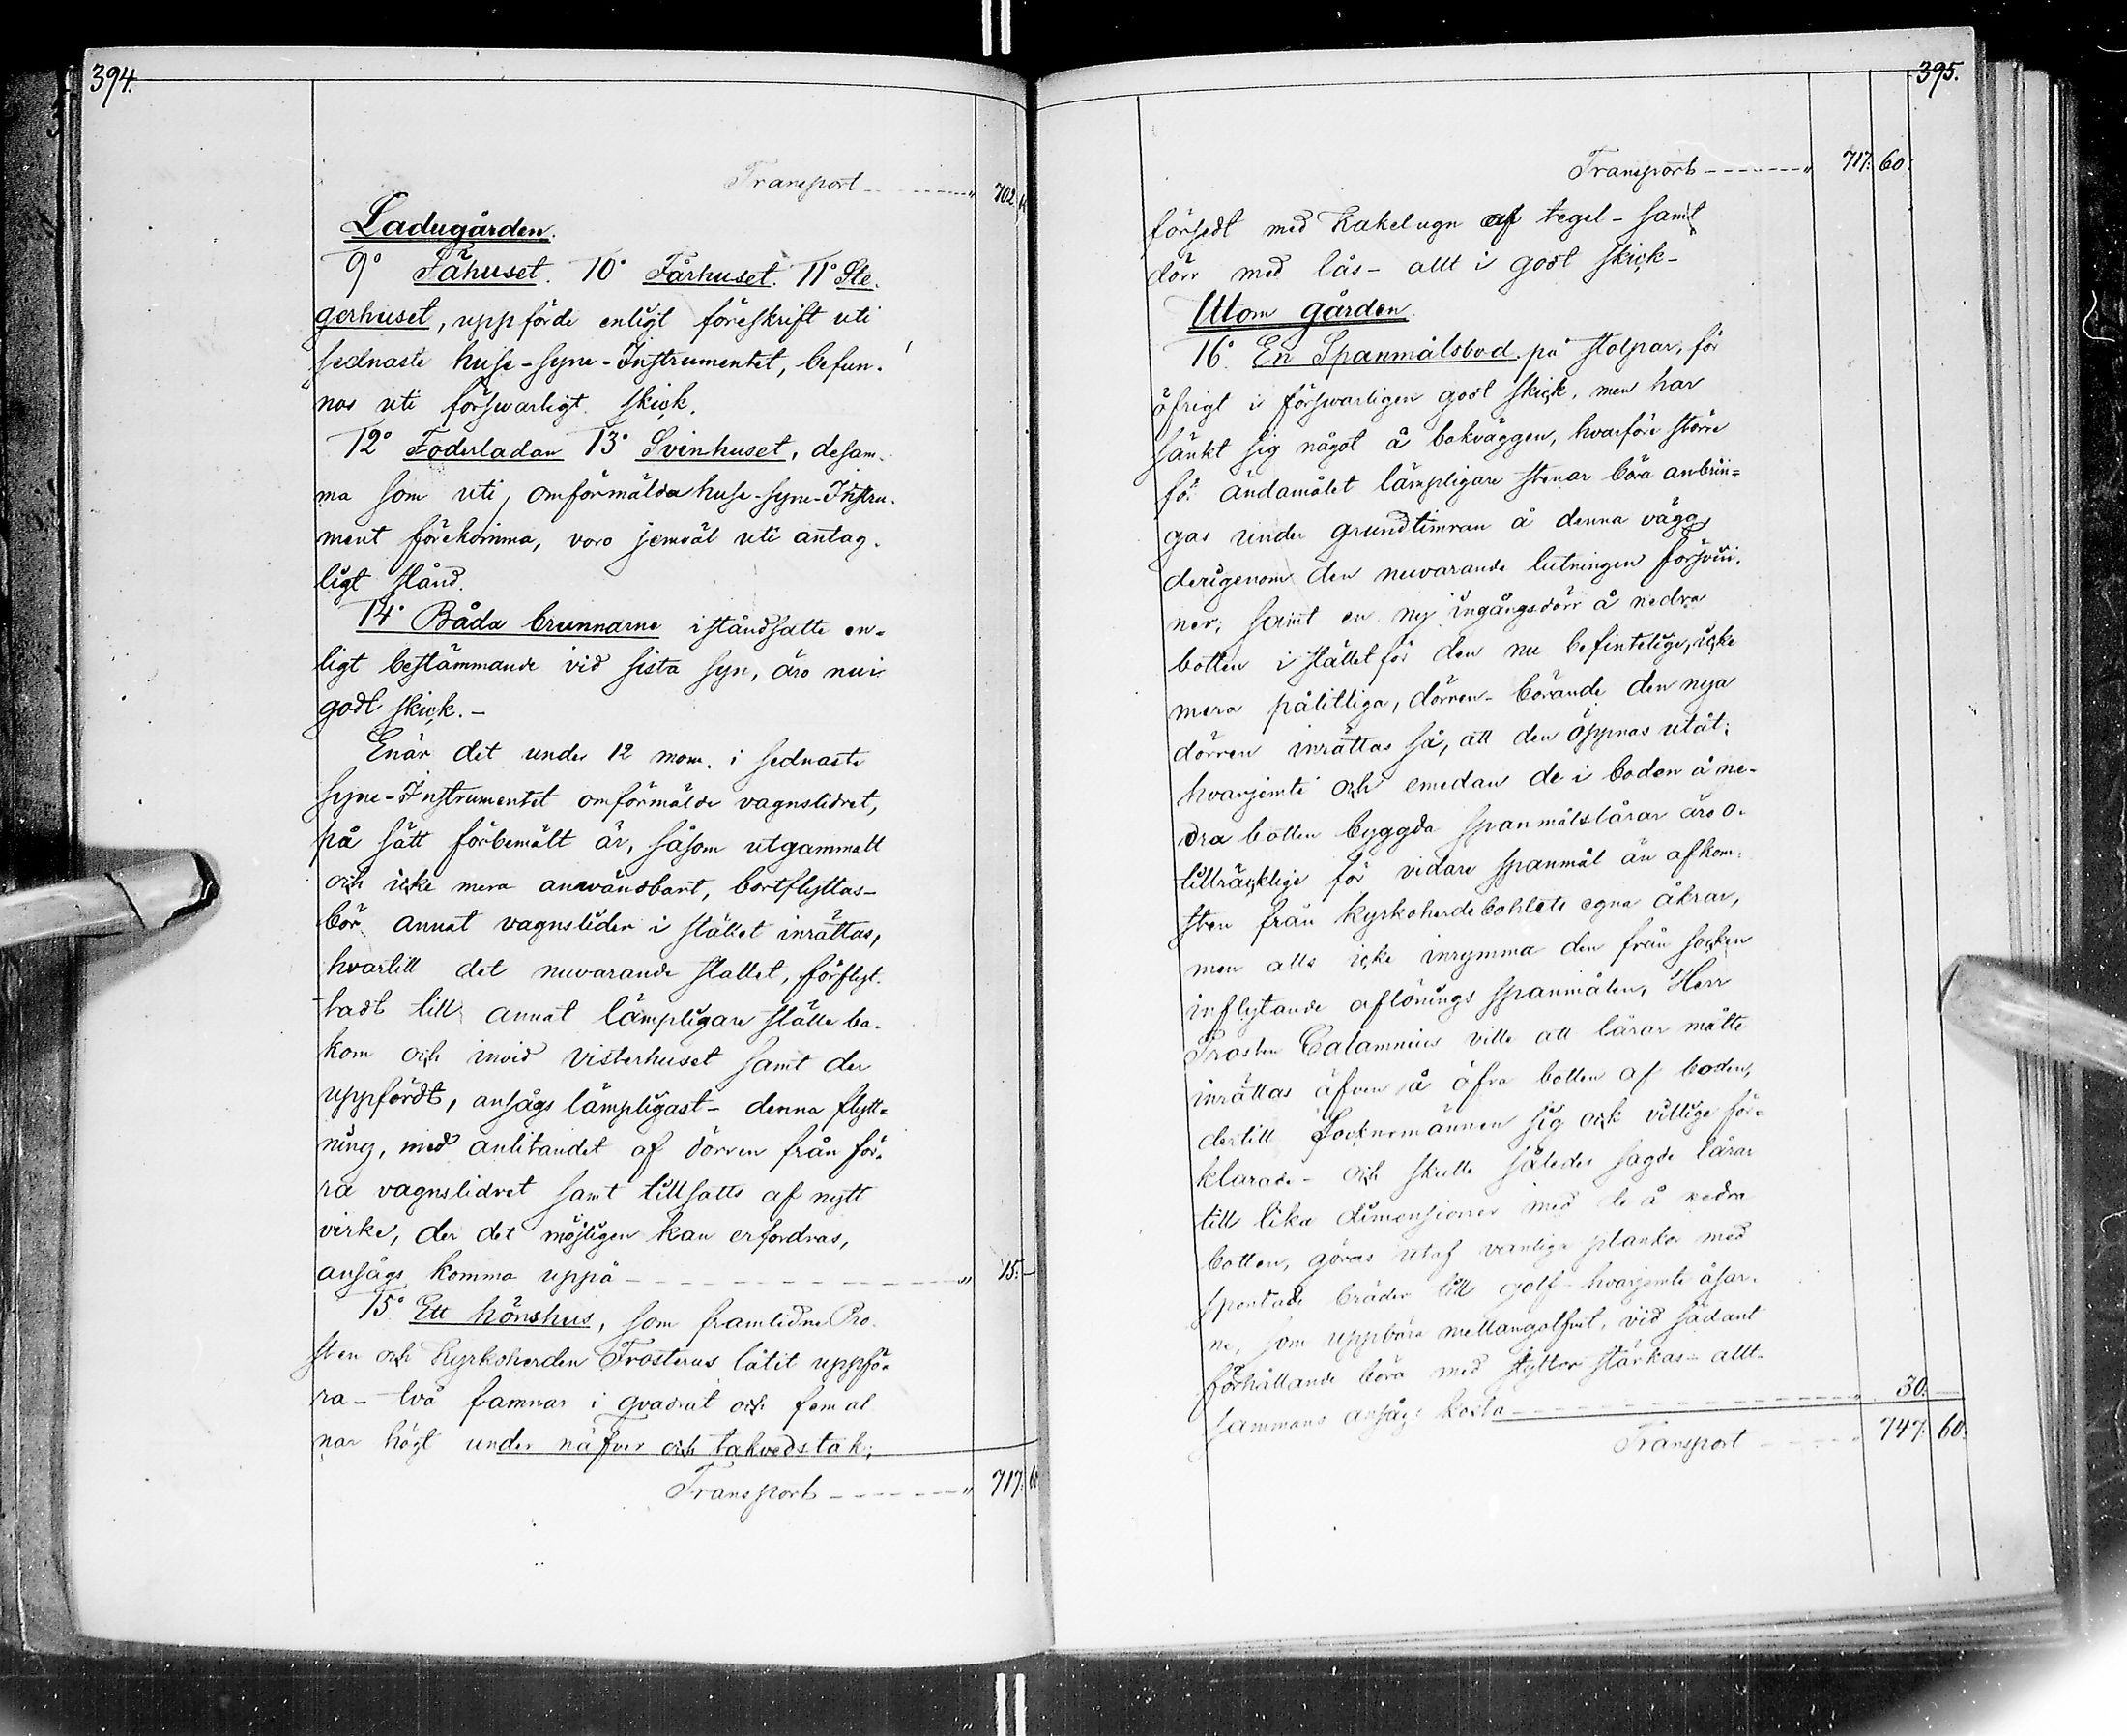 394.
Transport - - - - - - " 702. 60
Ladugården.
9° Fähuset. 10° Fårhuset. 11° Ste-
gerhuset, uppförde enligt föreskrift uti
sednaste huse-syne-Instrumentet, befun-
nos uti förswarligt skick.
12° Foderladan 13° Svinhuset, desam-
ma som uti omförmälda huse-syne-Instru-
ment förekomma, voro jemväl uti antag-
ligt stånd.
14° Båda brunnarne iståndsatte en-
ligt bestämmande vid sista syn, äro nu i
godt skick. -
Enär det under 12 mom. i sednaste
syne-Instrumentet omförmälde vagnslidret,
på sätt förbemält är, såsom utgammalt
och icke mera anwändbart, bortflyttas -
bör annat vagnslider i stället inrättas,
hvartill det nuvarande stallet, förflyt-
tadt till annat lämpligare ställe ba-
kom och invid visterhuset samt der
uppfördt, ansågs lämpligast - denna flytt-
ning, med anlitandet af dörren från för-
ra vagnslidret samt tillsatts af nytt
virke, der det möjligen kan erfordras,
ansågs komma uppå - - - - - - " 15. -
15° Ett hönshus, som framlidne Pro-
sten och Kyrkoherden Frosterus låtit uppfö-
ra - två famnar i qvadrat och fem al-
nar högt under näfver och takvedstak;
Transport - - - - - - " 717. 60
395.
Transport - - - - - - " 717. 60.
försedt med Kakelugn af tegel - samt
dörr med lås - allt i godt skick -
Utom gården
16° En Spanmålsbod på stolpar, för
öfrigt i förswarligen godt skick, men har
sänkt sig något å bakväggen, hvarföre större
för ändamålet lämpligare stenar böra anbrin-
gas under grundtimran å denna vägg,
derigenom den nuvarande lutningen försvin-
ner; samt en ny ingångsdörr å nedra
botten i stället för den nu befintelige, icke
mera pålitliga, dörren - börande den nya
dörren inrättas så, att den öppnas utåt;
hvarjemte och emedan de i boden å ne-
dra botten byggda spanmålslårar äro o-
tillräcklige för vidare spanmål än afkom-
sten från Kyrkoherdebohlets egna åkrar,
men alls icke inrymma den från socken
inflytande aflönings spanmålen, Herr
Prosten Calamnius ville att lårar måtte
inrättas äfven å öfra botten af boden,
dertill Socknemännen sig och villige för-
klarade - och skulle således sagde lårar
till lika dimensioner med de å nedra
botten, göras utaf vanliga plankor med
spontade bräder till golf - hvarjemte åsar-
ne, som uppbära mellangolfvet, vid sådant
förhållande böra med styltor stärkas - allt-
sammans ansågs kosta - - - - - - " 30. -
Transport - - - - " 747. 60.